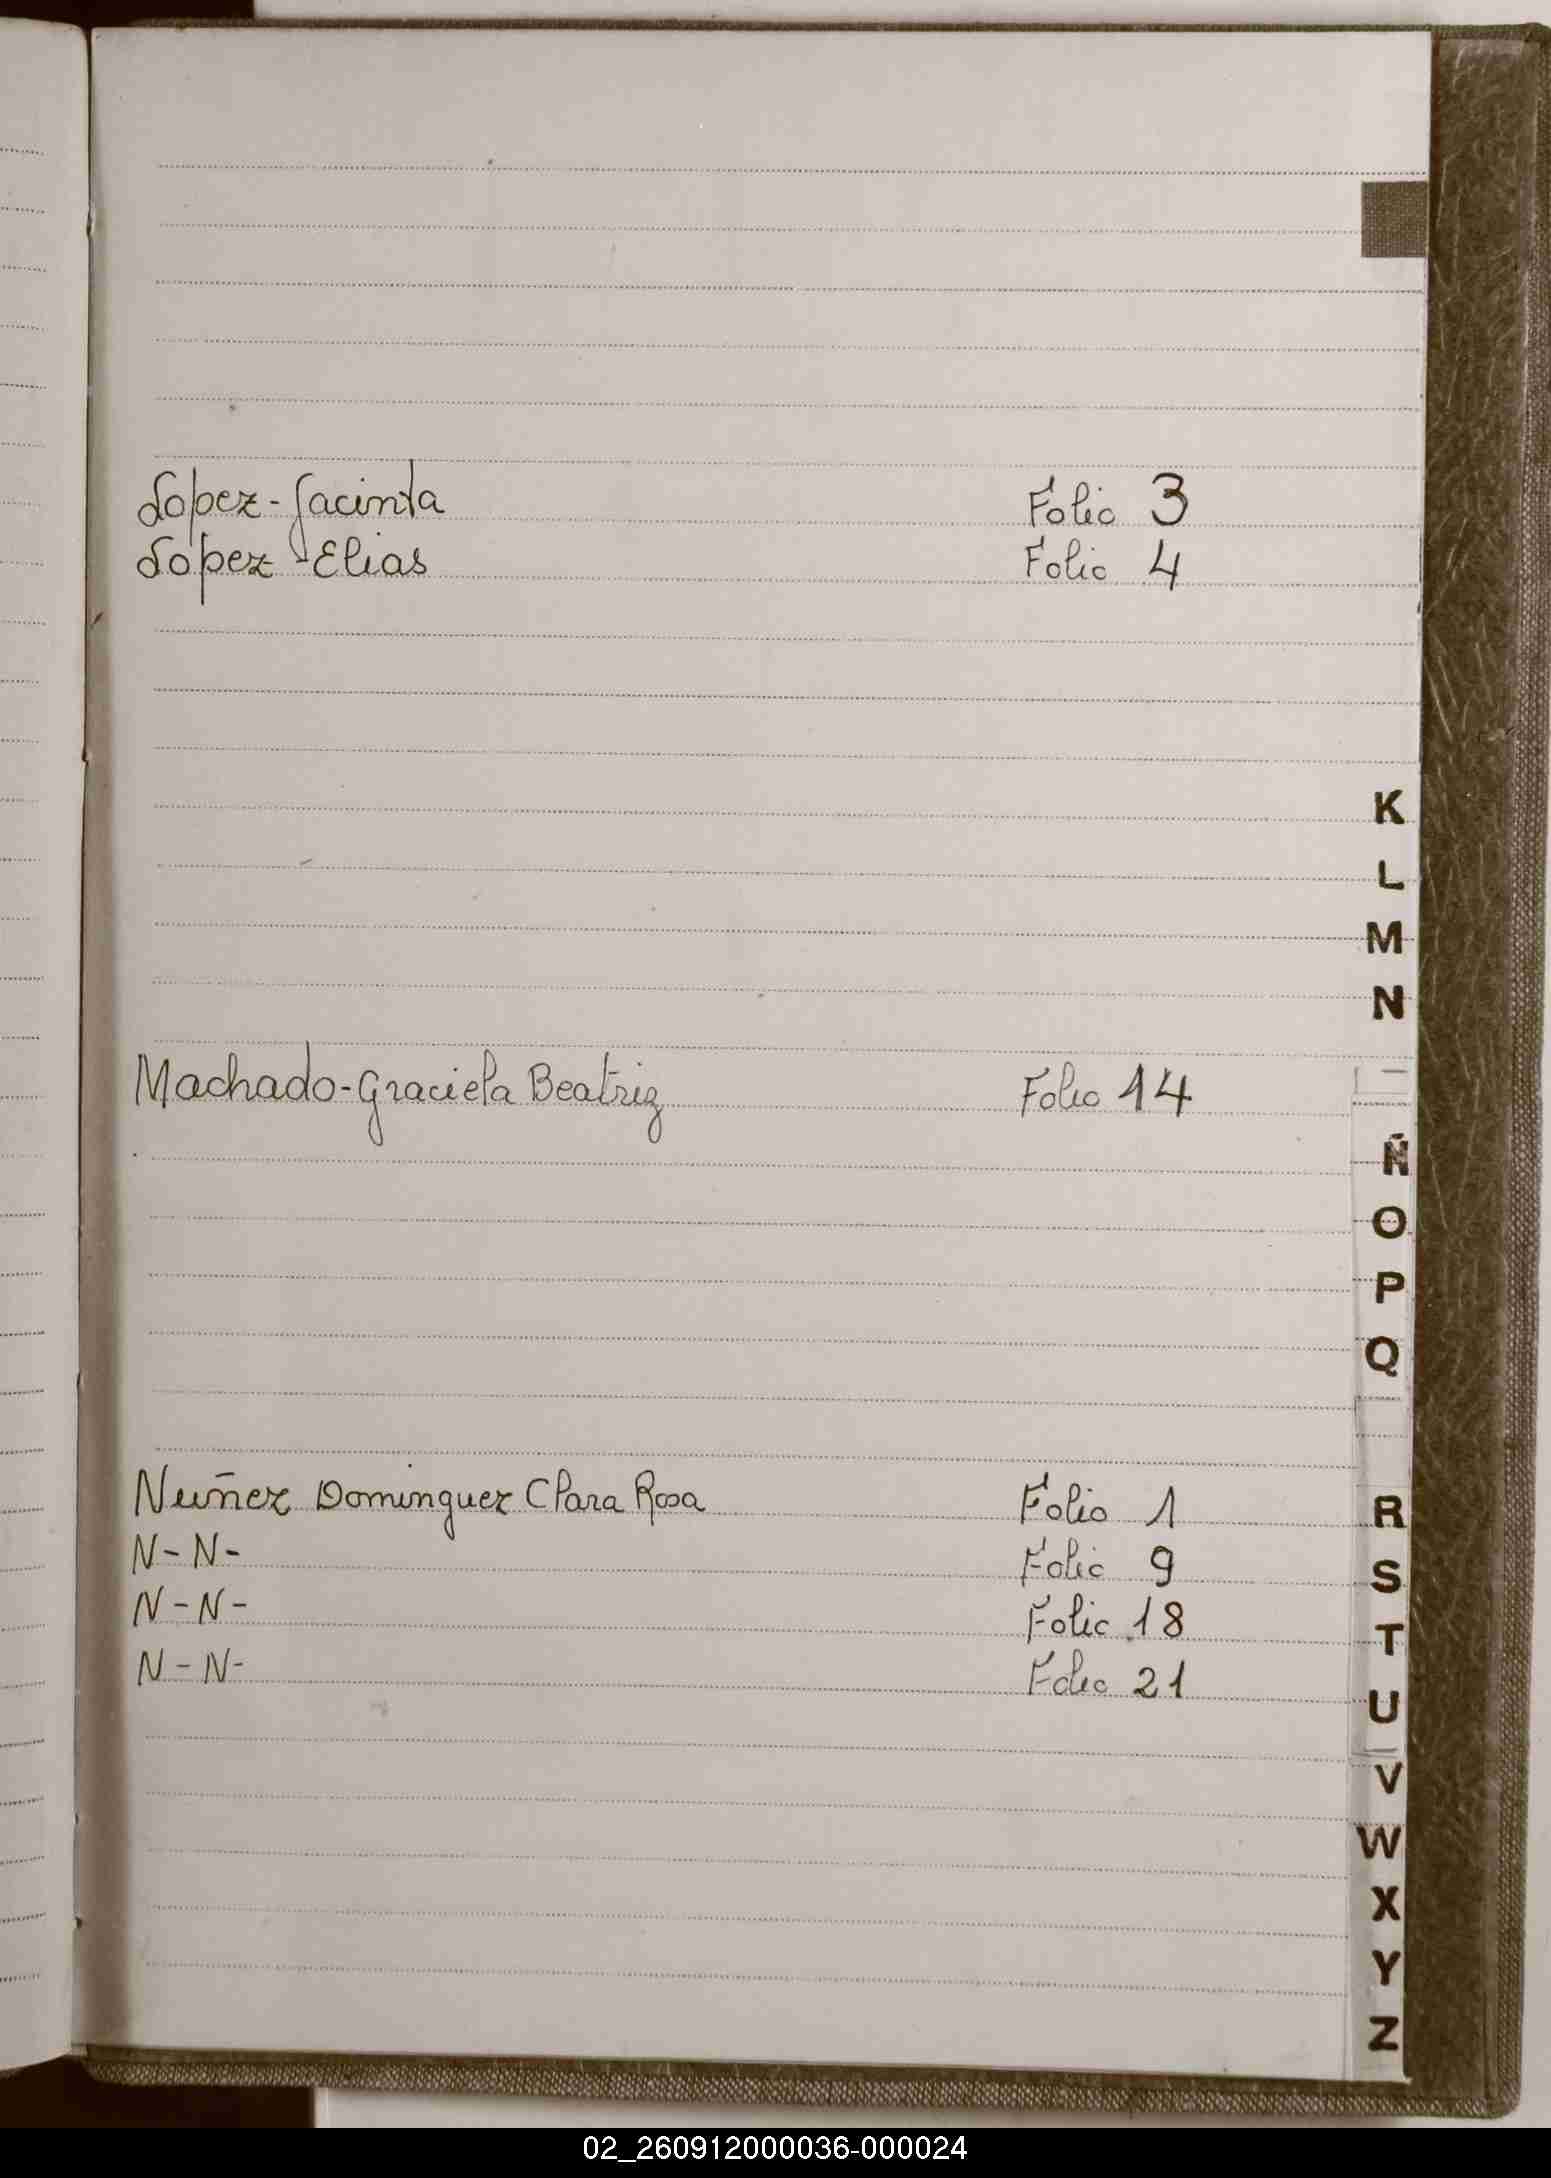 Lopez - Jacinta Folio 3
Lopez - Elias Folio 4
K
L
M
N
Machado - Graciela Beatriz Folio 14
Ñ
O
P
Q
Nuñez Dominguez Clara Rosa Folio 1
R
N - N - Folio 9
S
N - N - Folio 18
T
N - N - Folio 21
U
V
W
X
Y
Z
02_260912000036-000024